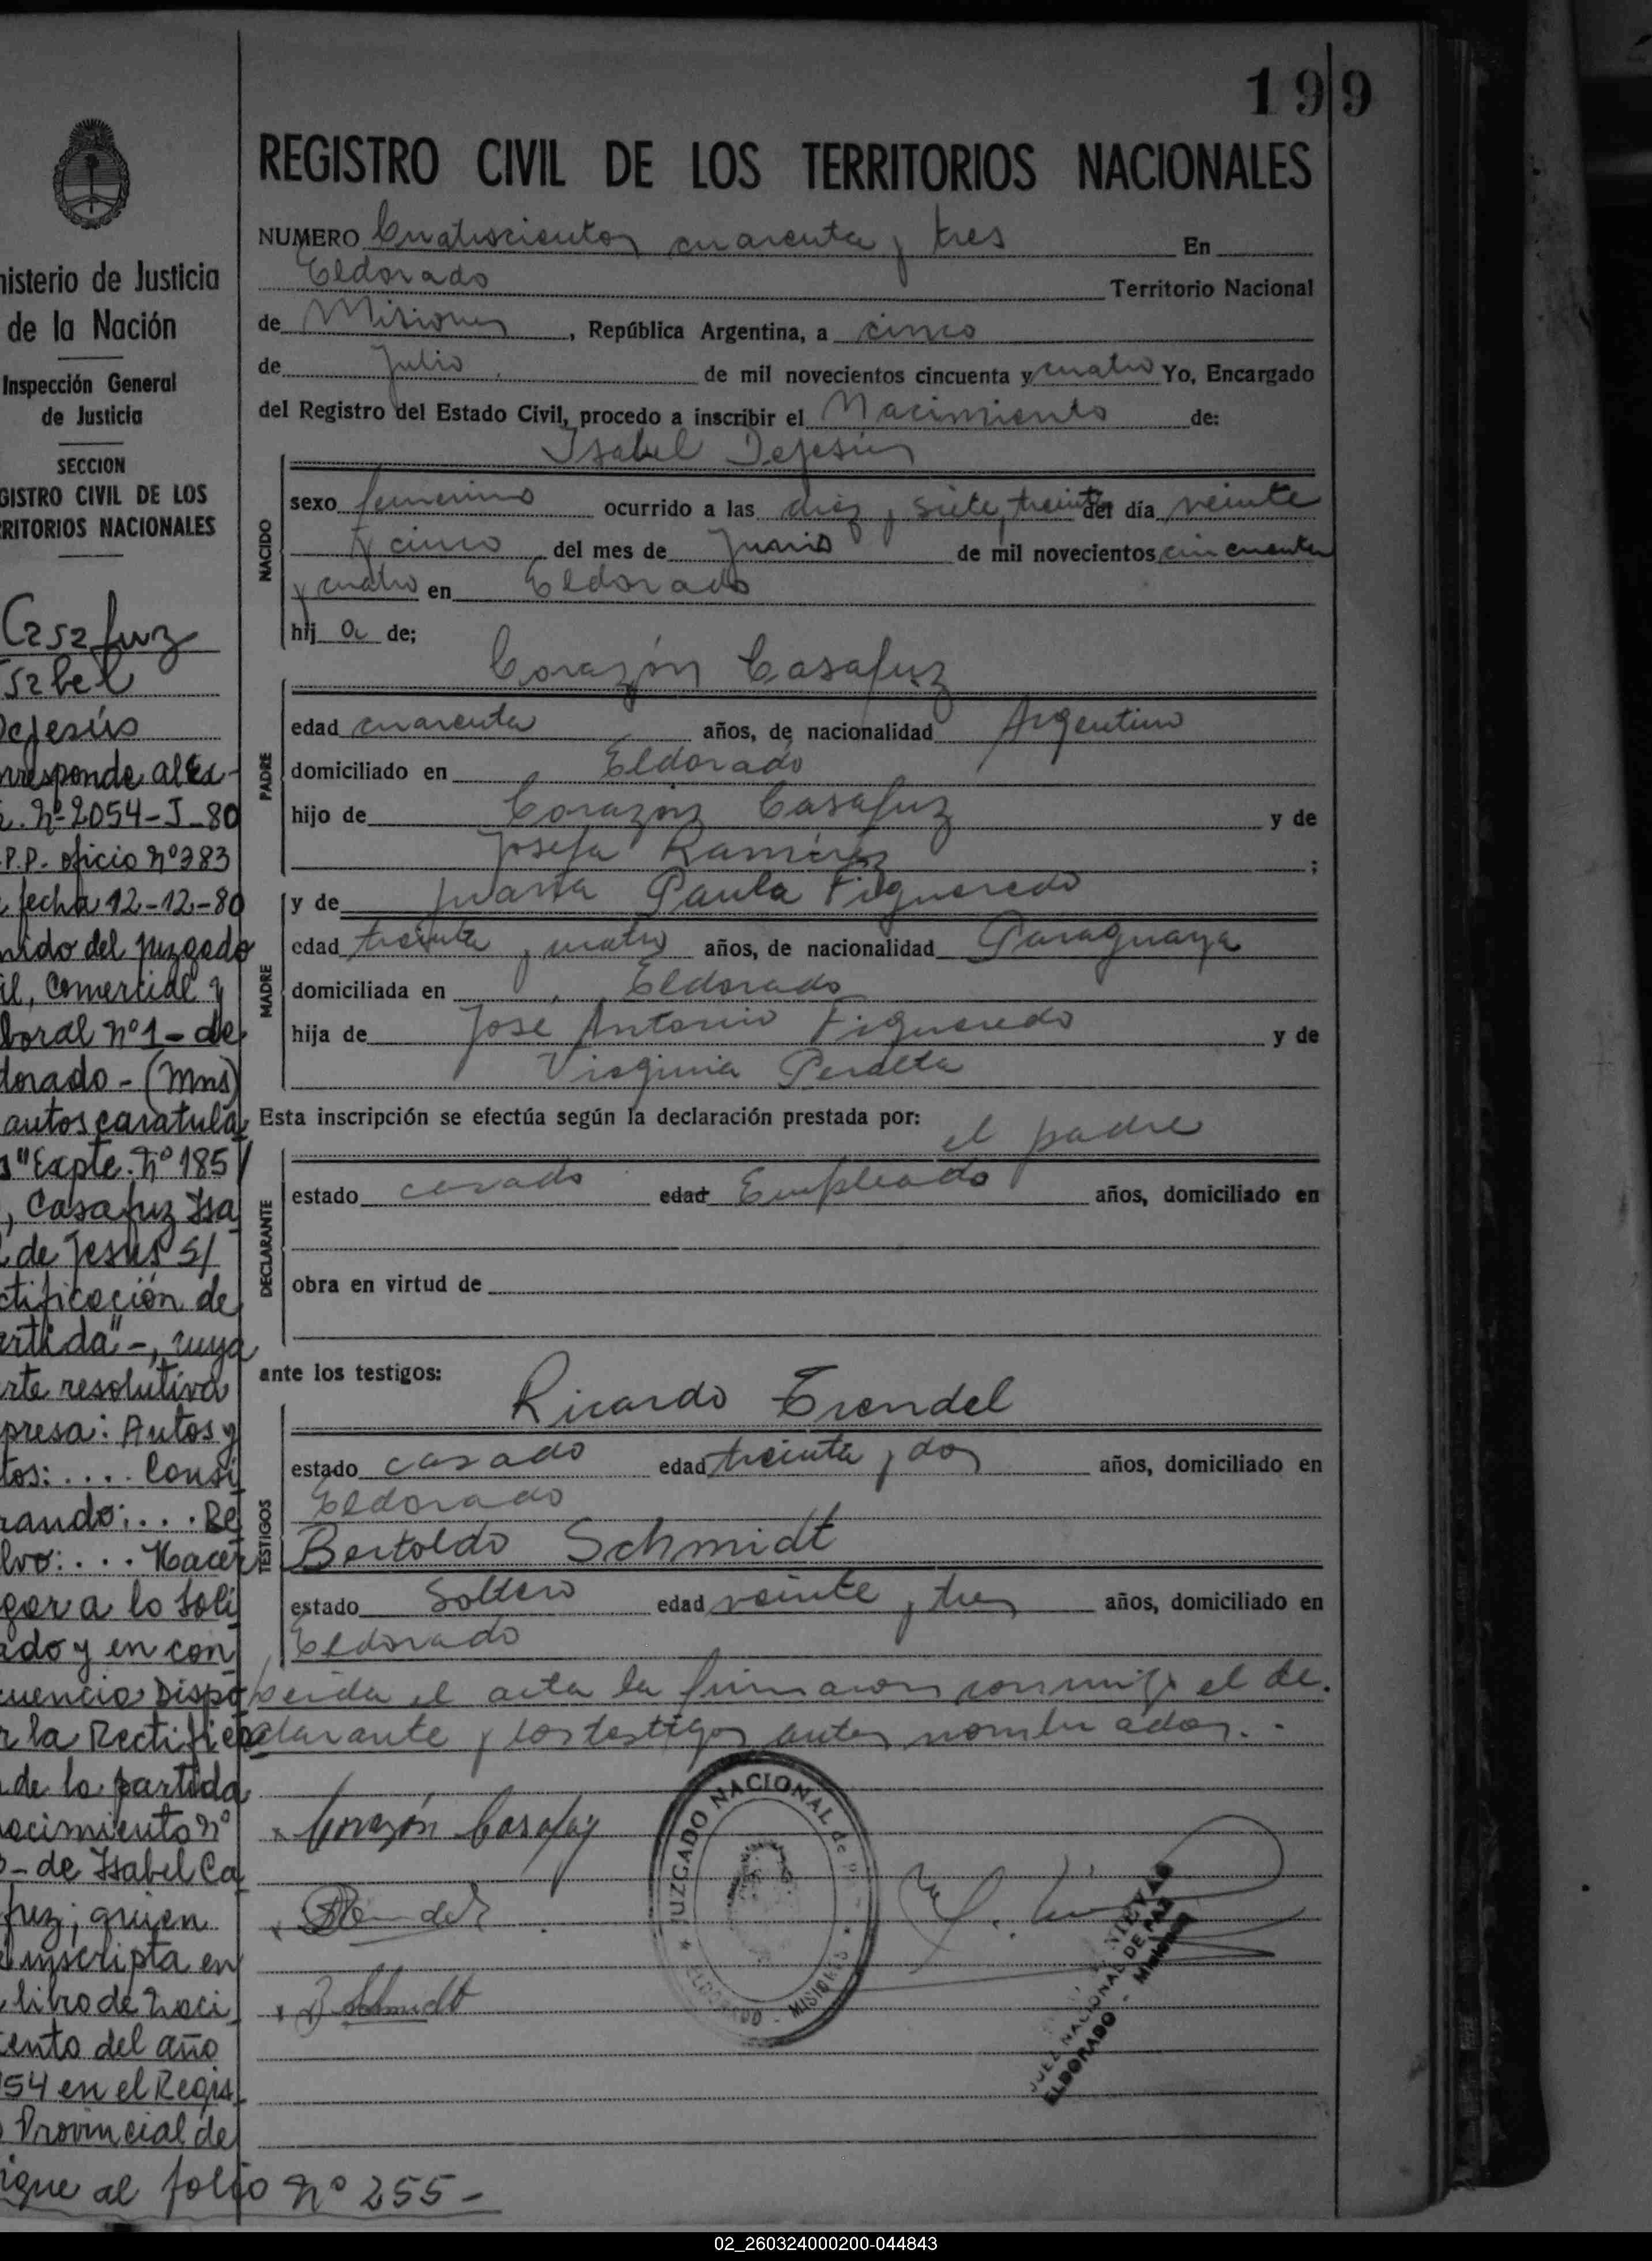 199
REGISTRO CIVIL DE LOS TERRITORIOS NACIONALES
NUMERO Cuatrocientos cuarenta y tres En
Eldorado Territorio Nacional
de Misiones, República Argentina, a cinco
de Julio de mil novecientos cincuenta y cuatro Yo, Encargado
del Registro del Estado Civil, procedo a inscribir el Nacimiento de:
Isabel Dejesús
NACIDO
sexo femenino ocurrido a las diez y siete, treinta del día veinte
y cinco del mes de Junio de mil novecientos cincuenta
y cuatro en Eldorado
hij a de;
Corazón Casafuz
PADRE
edad cuarenta años, de nacionalidad Argentino
domiciliado en Eldorado
hijo de Corazón Casafuz y de
Josefa Ramírez ;
y de Juana Paula Figueredo
MADRE
edad treinta y cuatro años, de nacionalidad Paraguaya
domiciliada en Eldorado
hija de José Antonio Figueredo y de
Virginia Peralta
Esta inscripción se efectúa según la declaración prestada por:
el padre
DECLARANTE
estado casado edad Empleado años, domiciliado en
obra en virtud de
ante los testigos:
Ricardo Trendel
TESTIGOS
estado casado edad treinta y dos años, domiciliado en
Eldorado
Bertoldo Schmidt
estado Soltero edad veinte y tres años, domiciliado en
Eldorado
Leida el acta la firmaron conmigo el de.
clarante y los testigos antes nombrados. -
x Corazón Casafuz
x B Schmidt
JUZGADO NACIONAL de
ELDORADO - MISIONES
NIEVAS
JUEZ NACIONAL DE PAZ
ELDORADO - Misiones
nisterio de Justicia
de la Nación
Inspección General
de Justicia
SECCION
GISTRO CIVIL DE LOS
RRITORIOS NACIONALES
Casafuz
Isabel
Dejesús
rresponde al Ex-
. Nº 2054-J-80
P.P. oficio nº 383
fecha 12-12-80
nido del juzgado
il, Comercial y
boral nº 1 - de
dorado - (Mns)
autos caratula
s "Expte. Nº 185
, Casafuz Isa
de Jesus S/
ctificación de
artida" -, cuya
rte resolutiva
presa: Autos y
tos: .... Consi
rando: ... Re
lvo: ... Hacer
gar a lo soli
ado y en con
cuencia Dispo
r la Rectifica
de la partida
acimiento nº
- de Isabel Ca
fuz; quien
inscripta en
libro de naci
ento del año
54 en el Regis
Provincial de
igue al folio Nº 255 -
02_260324000200-044843